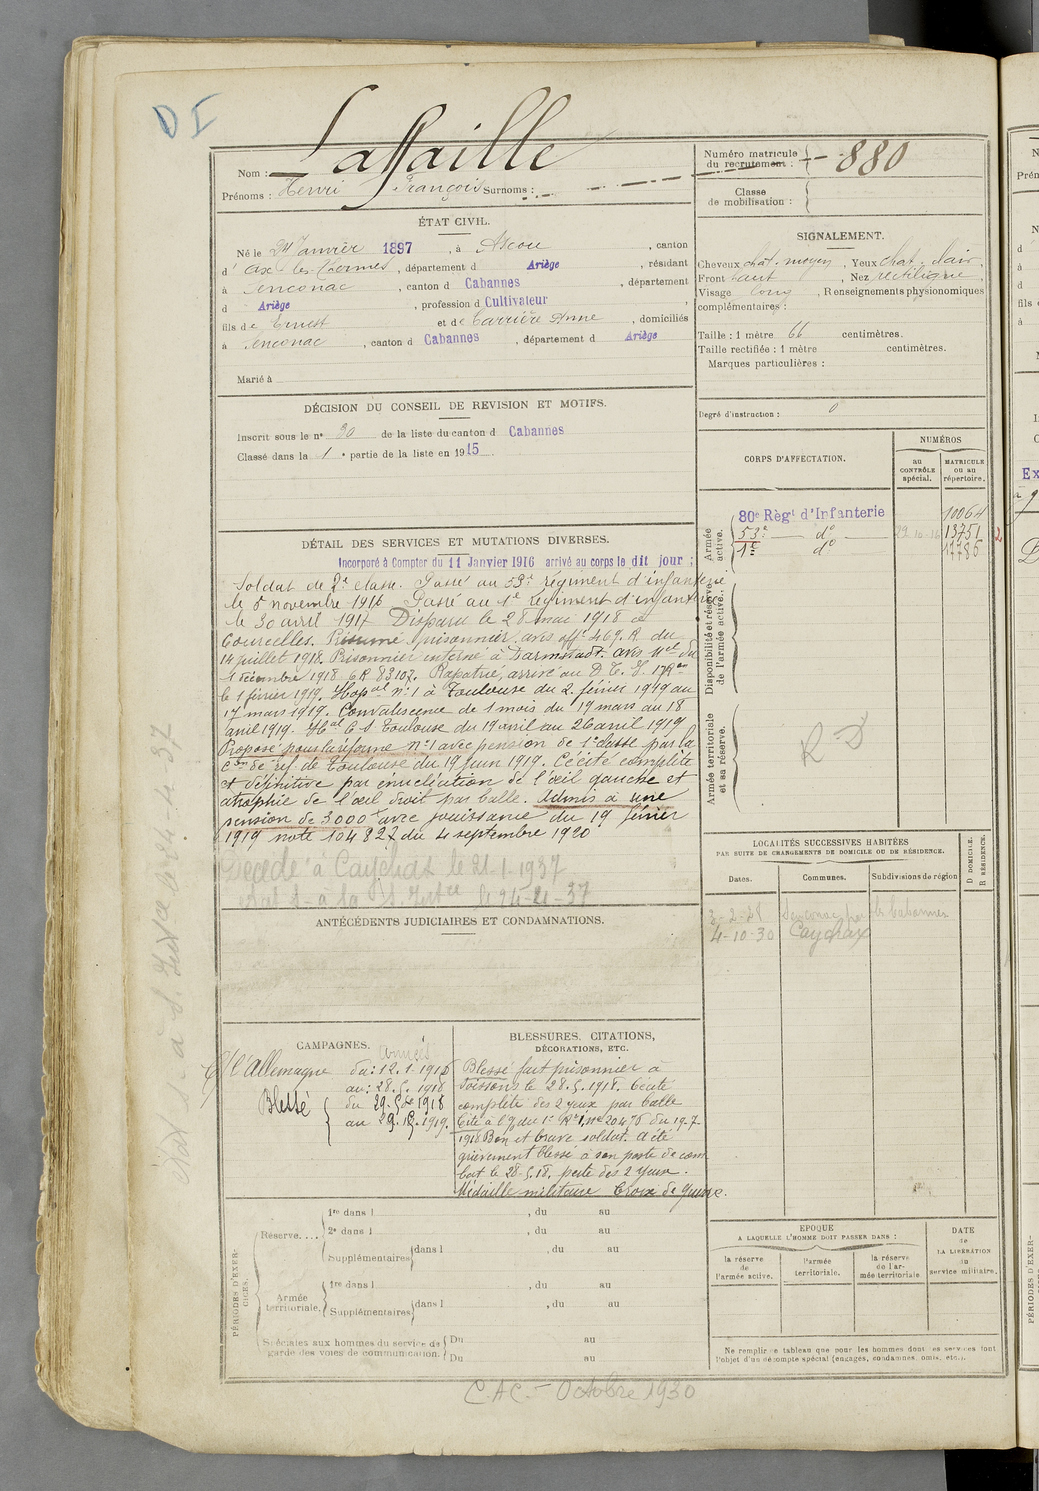 D I
Nom : Lassaille
Prénoms : Henri François Surnoms :
Numéro matricule
du recrutement : 880
Classe
de mobilisation :
ÉTAT CIVIL.
Né le 24 Janvier 1897, à Ascou, canton
d' ax-les-Thermes, département d Ariège, résidant
à Senconac, canton d Cabannes, département
d Ariège, profession d Cultivateur,
fils de Ernest et de Carrière Anne, domiciliés
à Senconac, canton d Cabannes, département d Ariège
Marié à
SIGNALEMENT.
Cheveux chat. moyen, Yeux chat. clair,
Front haut, Nez rectiligne,
Visage long, Renseignements physionomiques
complémentaires :
Taille : 1 mètre 66 centimètres.
Taille rectifiée : 1 mètre centimètres.
Marques particulières :
Degré d'instruction : 0
DÉCISION DU CONSEIL DE REVISION ET MOTIFS.
Inscrit sous le n° 30 de la liste du canton d Cabannes
Classé dans la 1e partie de la liste en 1915.
CORPS D'AFFECTATION.
NUMÉROS
au
CONTRÔLE
spécial.
MATRICULE
ou au
répertoire.
Armée
active.
80e Régt d'Infanterie 10064
53e do 13751
1e do 11786
Disponibilité et réserve
de l'armée active.
Armée territoriale
et sa réserve.
R D
DÉTAIL DES SERVICES ET MUTATIONS DIVERSES.
Incorporé à Compter du 11 Janvier 1916 arrivé au corps le dit jour ;
Soldat de 2e classe. Passé au 53e régiment d'infanterie
le 5 novembre 1916 Passé au 1e régiment d'infanterie
le 30 avril 1917 Disparu le 28 mai 1918 à
Courcelles. Présumé prisonnier, avis offel 469. R du
14 juillet 1918. Prisonnier interné à Darmstadt. avis nel du
1 décembre 1918 6R 83107. Rapatrié, arrivé au D. T. I. 17 Ron
le 1 février 1919. Hopal n° 1 à Toulouse du 2 février 1919 au
17 mars 1919. Convalescence de 1 mois du 19 mars au 18
avril 1919. Hal C S Toulouse du 19 avril au 26 avril 1919
Proposé pour la réforme n° 1 avec pension de 1e classe par la
Con de réf. de Toulouse du 19 juin 1919. Cécité complète
et définitive par énucléation de l'œil gauche et
atrophie de l'œil droit par balle. Admis à une
pension de 3000f avec jouissance du 19 février
1919 note 104827 du 4 septembre 1920
Décédé à Caychax le 21-1-1937
le 24-4-37
LOCALITÉS SUCCESSIVES HABITÉES
PAR SUITE DE CHANGEMENTS DE DOMICILE OU DE RÉSIDENCE.
Dates.
Communes.
Subdivisions de région
D DOMICILE.
R RÉSIDENCE.
Senconac par les Cabannes
4-10-30 Caychax
ANTÉCÉDENTS JUDICIAIRES ET CONDAMNATIONS.
CAMPAGNES.
C/ l'Allemagne du : 12. 1. 1916
au : 28. 5. 1918
Blessé du 29. 5. 1918
au 1919.
BLESSURES, CITATIONS,
DÉCORATIONS, ETC.
Blessé fait prisonnier à
Soissons le 28.5.1918. Cécité
complète des 2 yeux par balle
Cité à l'O. du 1e Rt I, n° 20476 du 19-7-
1918 Bon et brave soldat. A été
grièvement blessé à son poste de com
bat le 28-5-18. perte des 2 yeux.
Médaille militaire Croix de guerre.
PÉRIODES D'EXER-
CICES.
Réserve....
1re dans l , du au
2e dans l , du au
Supplémentaires dans l , du au
Armée
territoriale.
1re dans l , du au
Supplémentaires dans l , du au
Spéciales aux hommes du service de
garde des voies de communication.
Du au
Du au
EPOQUE
A LAQUELLE L'HOMME DOIT PASSER DANS :
la réserve
de
l'armée active.
l'armée
territoriale.
la réserve
de l'ar-
mée territoriale
DATE
de
LA LIBÉRATION
du
service militaire.
Ne remplir ce tableau que pour les hommes dont les services font
l'objet d'un décompte spécial (engagés, condamnés, omis, etc.).
C.A.C - Octobre 1930